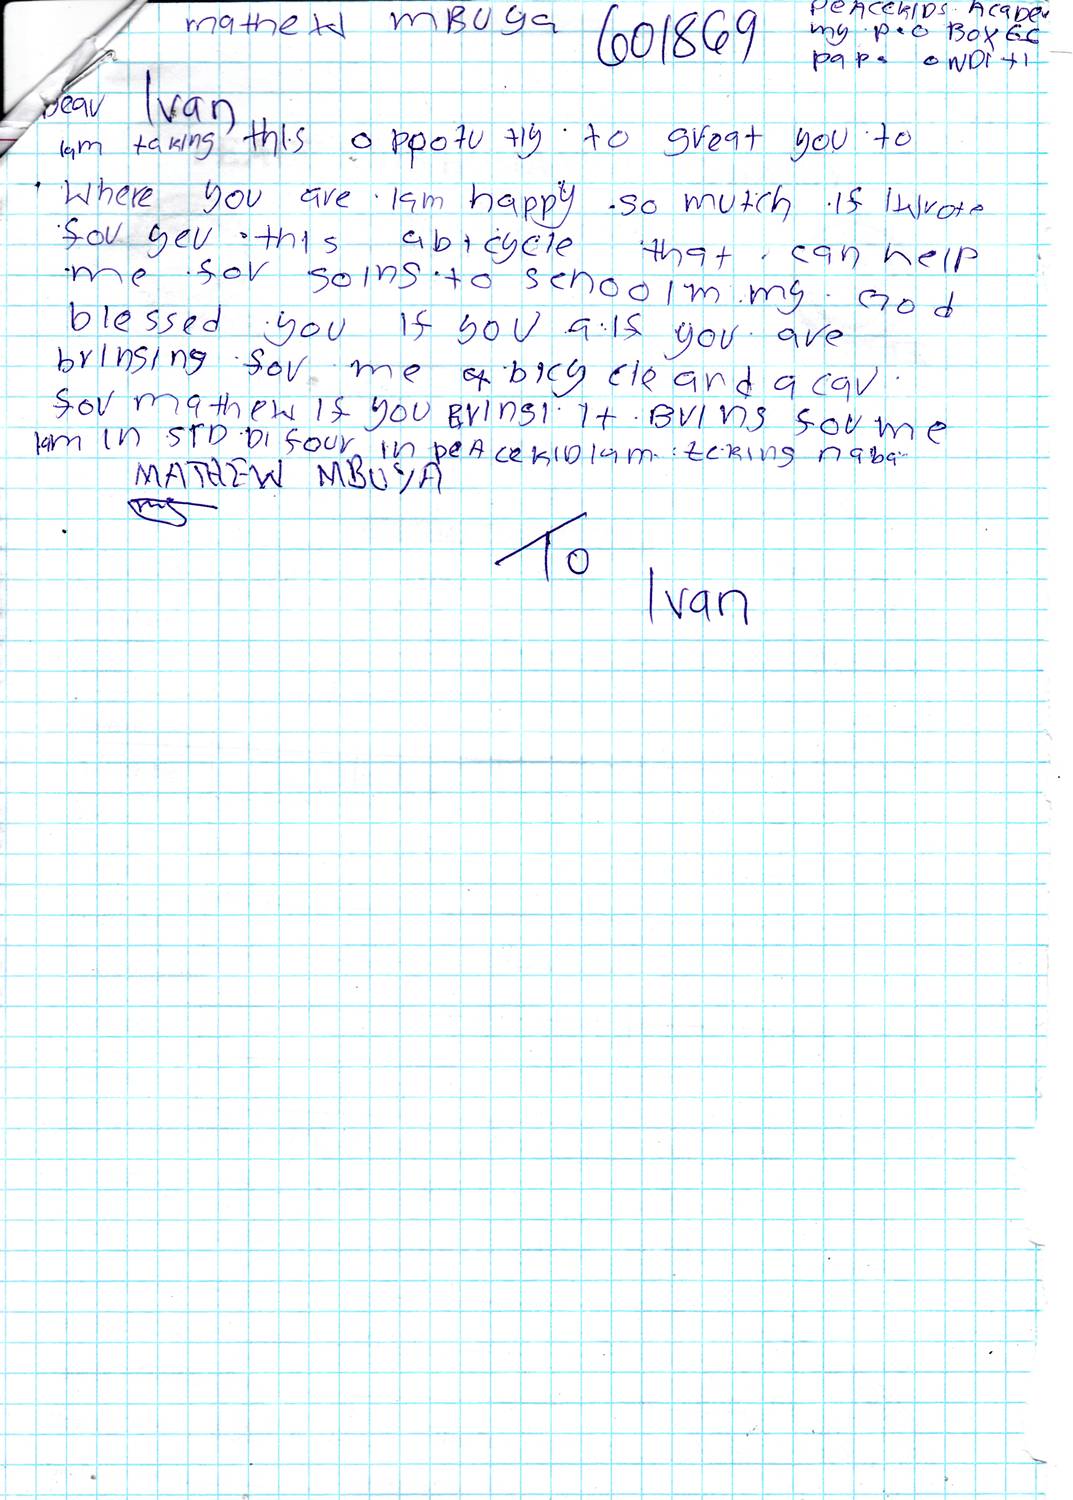 mathew mBUya 601869 PEACEKIDS. Academy
my p.o BOX 66
pap. ONDITI
Dear Ivan
Iam taking this oppotutiy. to great you to
Where you are. Iam happy. so mutch. if I wrote
for yer. this abicycle that. can help
me for going. to school m. my. God
blessed you if you a. if you are
bringing. for me a bicycle and a car.
for mathew if you Bringi it. Bring for me
Iam in STD. DI four in PEACEKID Iam
MATHEW MBUYA
To
Ivan